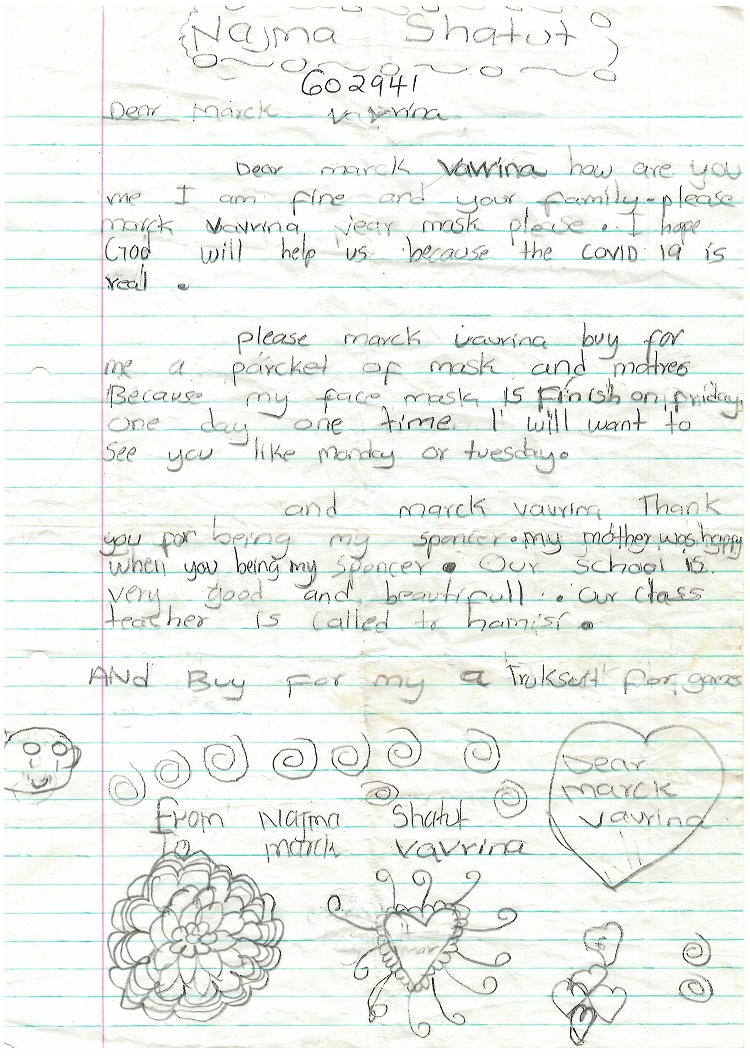 Najma Shatut
602941
Dear Marck Vavrina
Dear marck Vavrina how are you
me I am fine and your family. please
marck Vavrina, year mask please. I hope
God will help us because the COVID 19 is
real.
please marck vavrina buy for
me a parcket of mask and motres
Because my face mask is Finish on friday.
one day one time I will want to
see you like monday or tuesday.
and marck vavrina Thank
you for being my spencer. my mother was happy
when you being my spencer. Our school is
very good and beautifull. our class
teacher is called tr hamisi.
AND Buy For my a Truksuit for games
Dear
marck
vavrina
From Najma Shatut
To marck vavrina